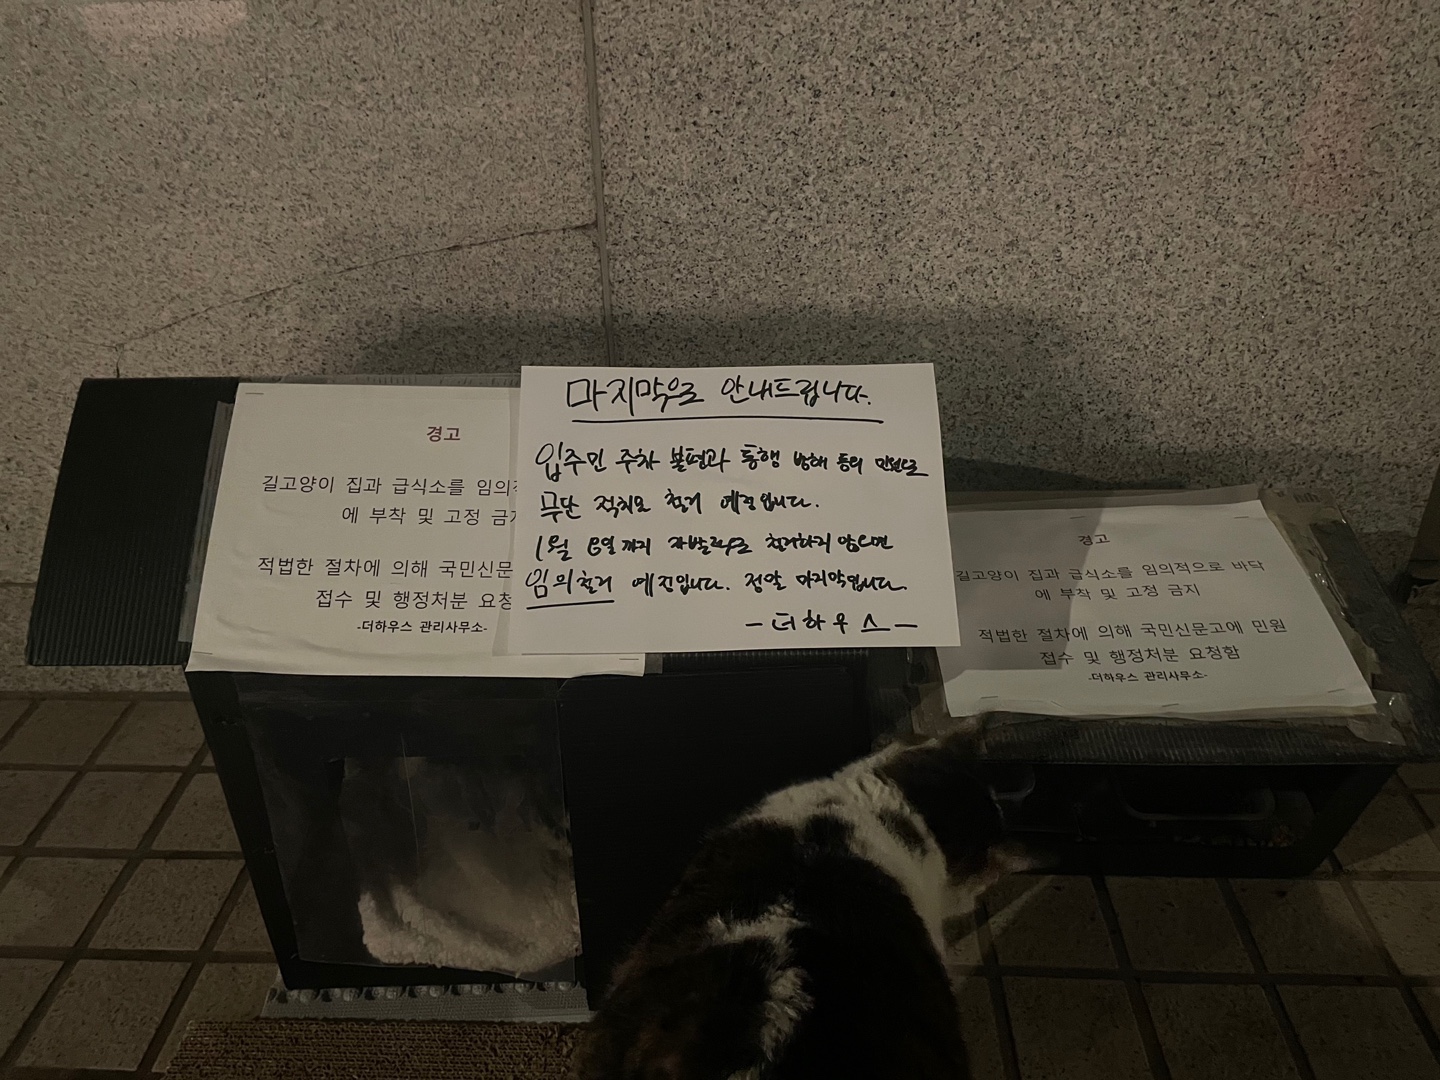 경고
길고양이 집과 급식소를 임의적
에 부착 및 고정 금지
적법한 절차에 의해 국민신문
접수 및 행정처분 요청
-더하우스 관리사무소-
마지막으로 안내드립니다.
입주민 주차 불편과 통행 방해 등의 민원으로
무단 적치로 철거 예정입니다.
1월 6일까지 자발적으로 철거하지 않으면
임의철거 예정입니다. 정말 마지막입니다.
-더하우스-
경고
길고양이 집과 급식소를 임의적으로 바닥
에 부착 및 고정 금지
적법한 절차에 의해 국민신문고에 민원
접수 및 행정처분 요청함
-더하우스 관리사무소-